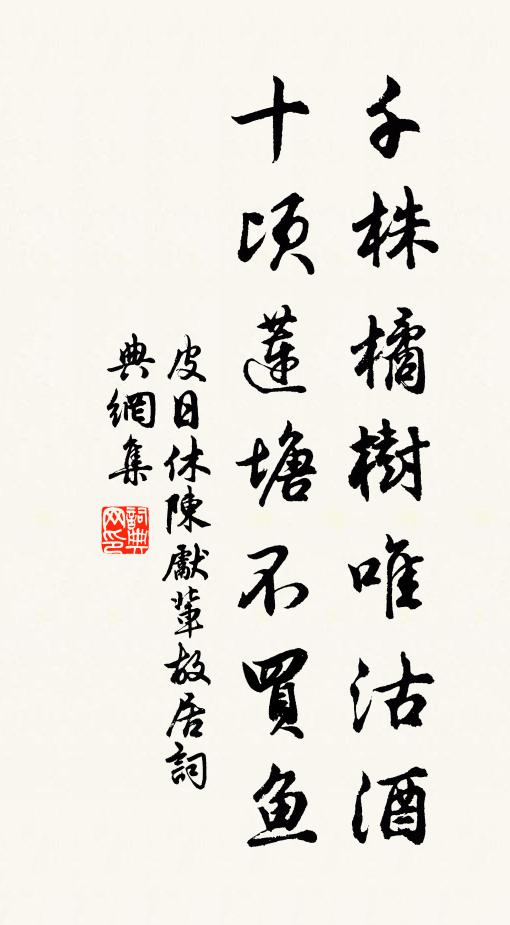 千株橘樹唯沽酒
十頃蓮塘不買魚
皮日休陳獻輩故居詞
典網集
詞典网印